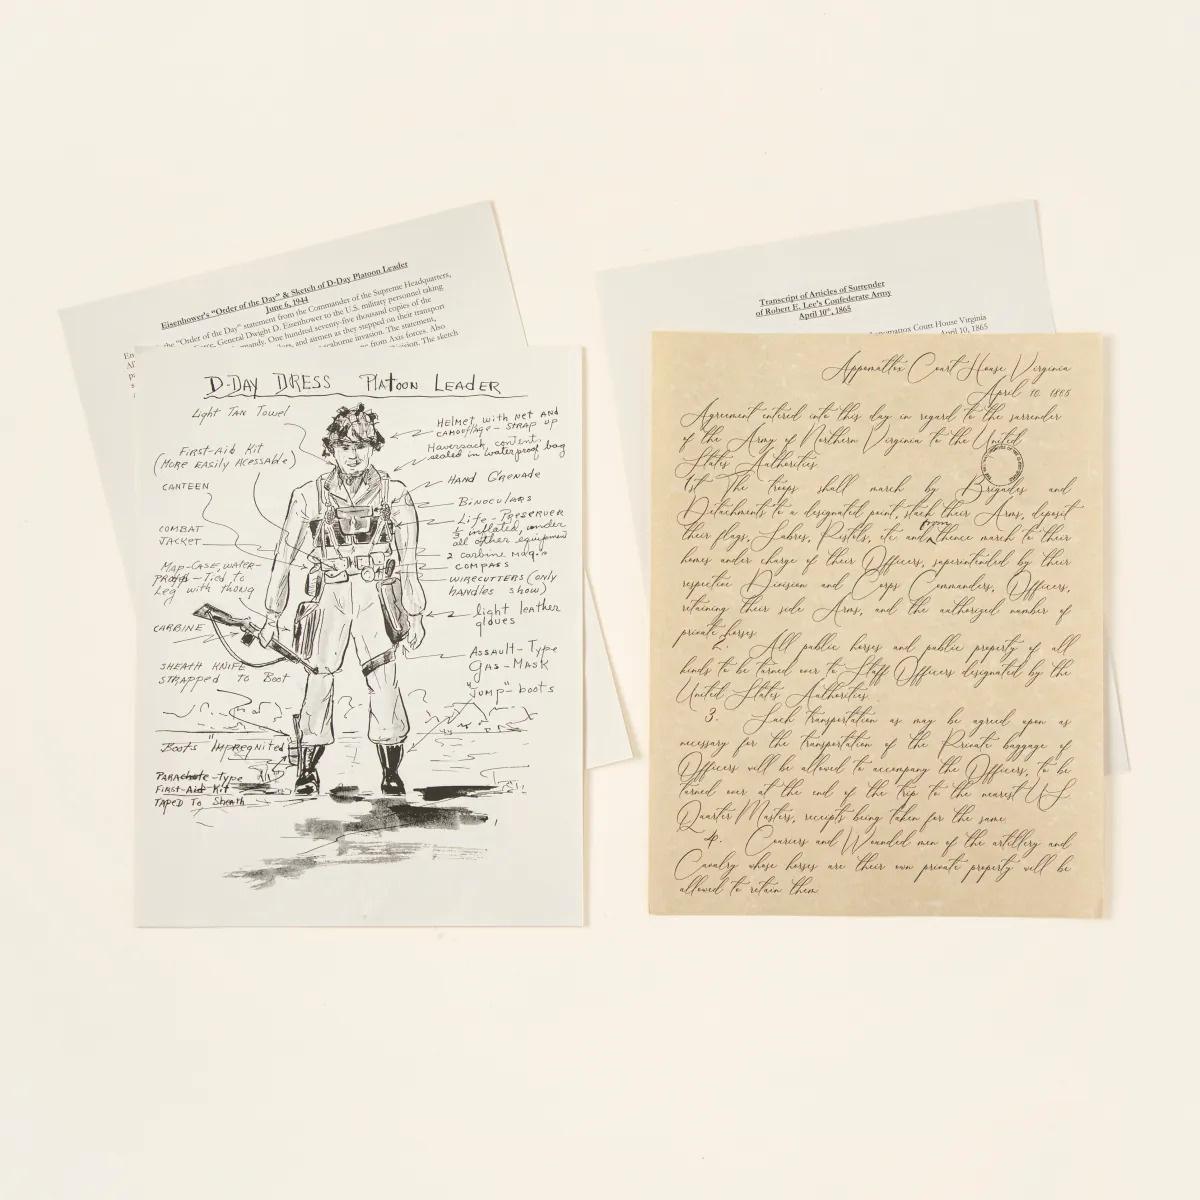 Eisenhower's "Order of the Day" & Sketch of D-Day Platoon Leader
June 6, 1944
"Order of the Day" statement from the Commander of the Supreme Headquarters,
General Dwight D. Eisenhower to the U.S. military personnel taking
One hundred seventy-five thousand copies of the
and airmen as they stepped on their transport
invasion. The statement,
from Axis forces. Also
The sketch
D-DAY DRESS PLATOON LEADER
Light TAN Towel
FIRST-AID KIT
(MORE EASILY ACESSABLE)
CANTEEN
COMBAT
JACKET
MAP-CASE, WATER-
PROOF-TIED TO
Leg WITH THONG
CARBINE
SHEATH KNIFE
STRAPPED TO BOOT
BOOTS "IMPREGNITED
PARACHUTE-TYPE
FIRST-AID KIT
TAPED TO SHEATH
HELMET WITH NET AND
CAMOUFLAGE - STRAP UP
Haversack, content
sealed in waterproof bag
HAND GRENADE
BINOCULARS
LIFE-PRESERVER
½ inflated, under
all other equipment
2 carbine MAG.
COMPASS
WIRECUTTERS (ONLY
HANDLES SHOW)
light leather
gloves
ASSAULT-TYPE
GAS-MASK
"JUMP"-boots
Transcript of Articles of Surrender
of Robert E. Lee's Confederate Army
April 10th, 1865
Appomattox Court House Virginia
April 10, 1865
Appomattox Court House Virginia
April 10, 1865
Agreement entered into this day in regard to the surrender
of the Army of Northern Virginia to the United
States Authorities.
1st The troops shall march by Brigades and
Detachments to a designated point, stack their Arms, deposit
their flags, Sabres, Pistols, etc. and from thence march to their
homes under charge of their Officers, superintended by their
respective Division and Corps Commanders, Officers,
retaining their side Arms, and the authorized number of
private horses.
2. All public horses and public property of all
kinds to be turned over to Staff Officers designated by the
United States Authorities.
3. Such transportation as may be agreed upon as
necessary for the transportation of the Private baggage of
Officers will be allowed to accompany the Officers, to be
turned over at the end of the trip to the nearest U.S.
Quarter Masters, receipts being taken for the same.
4. Couriers and Wounded men of the artillery and
Cavalry whose horses are their own private property will be
allowed to retain them.